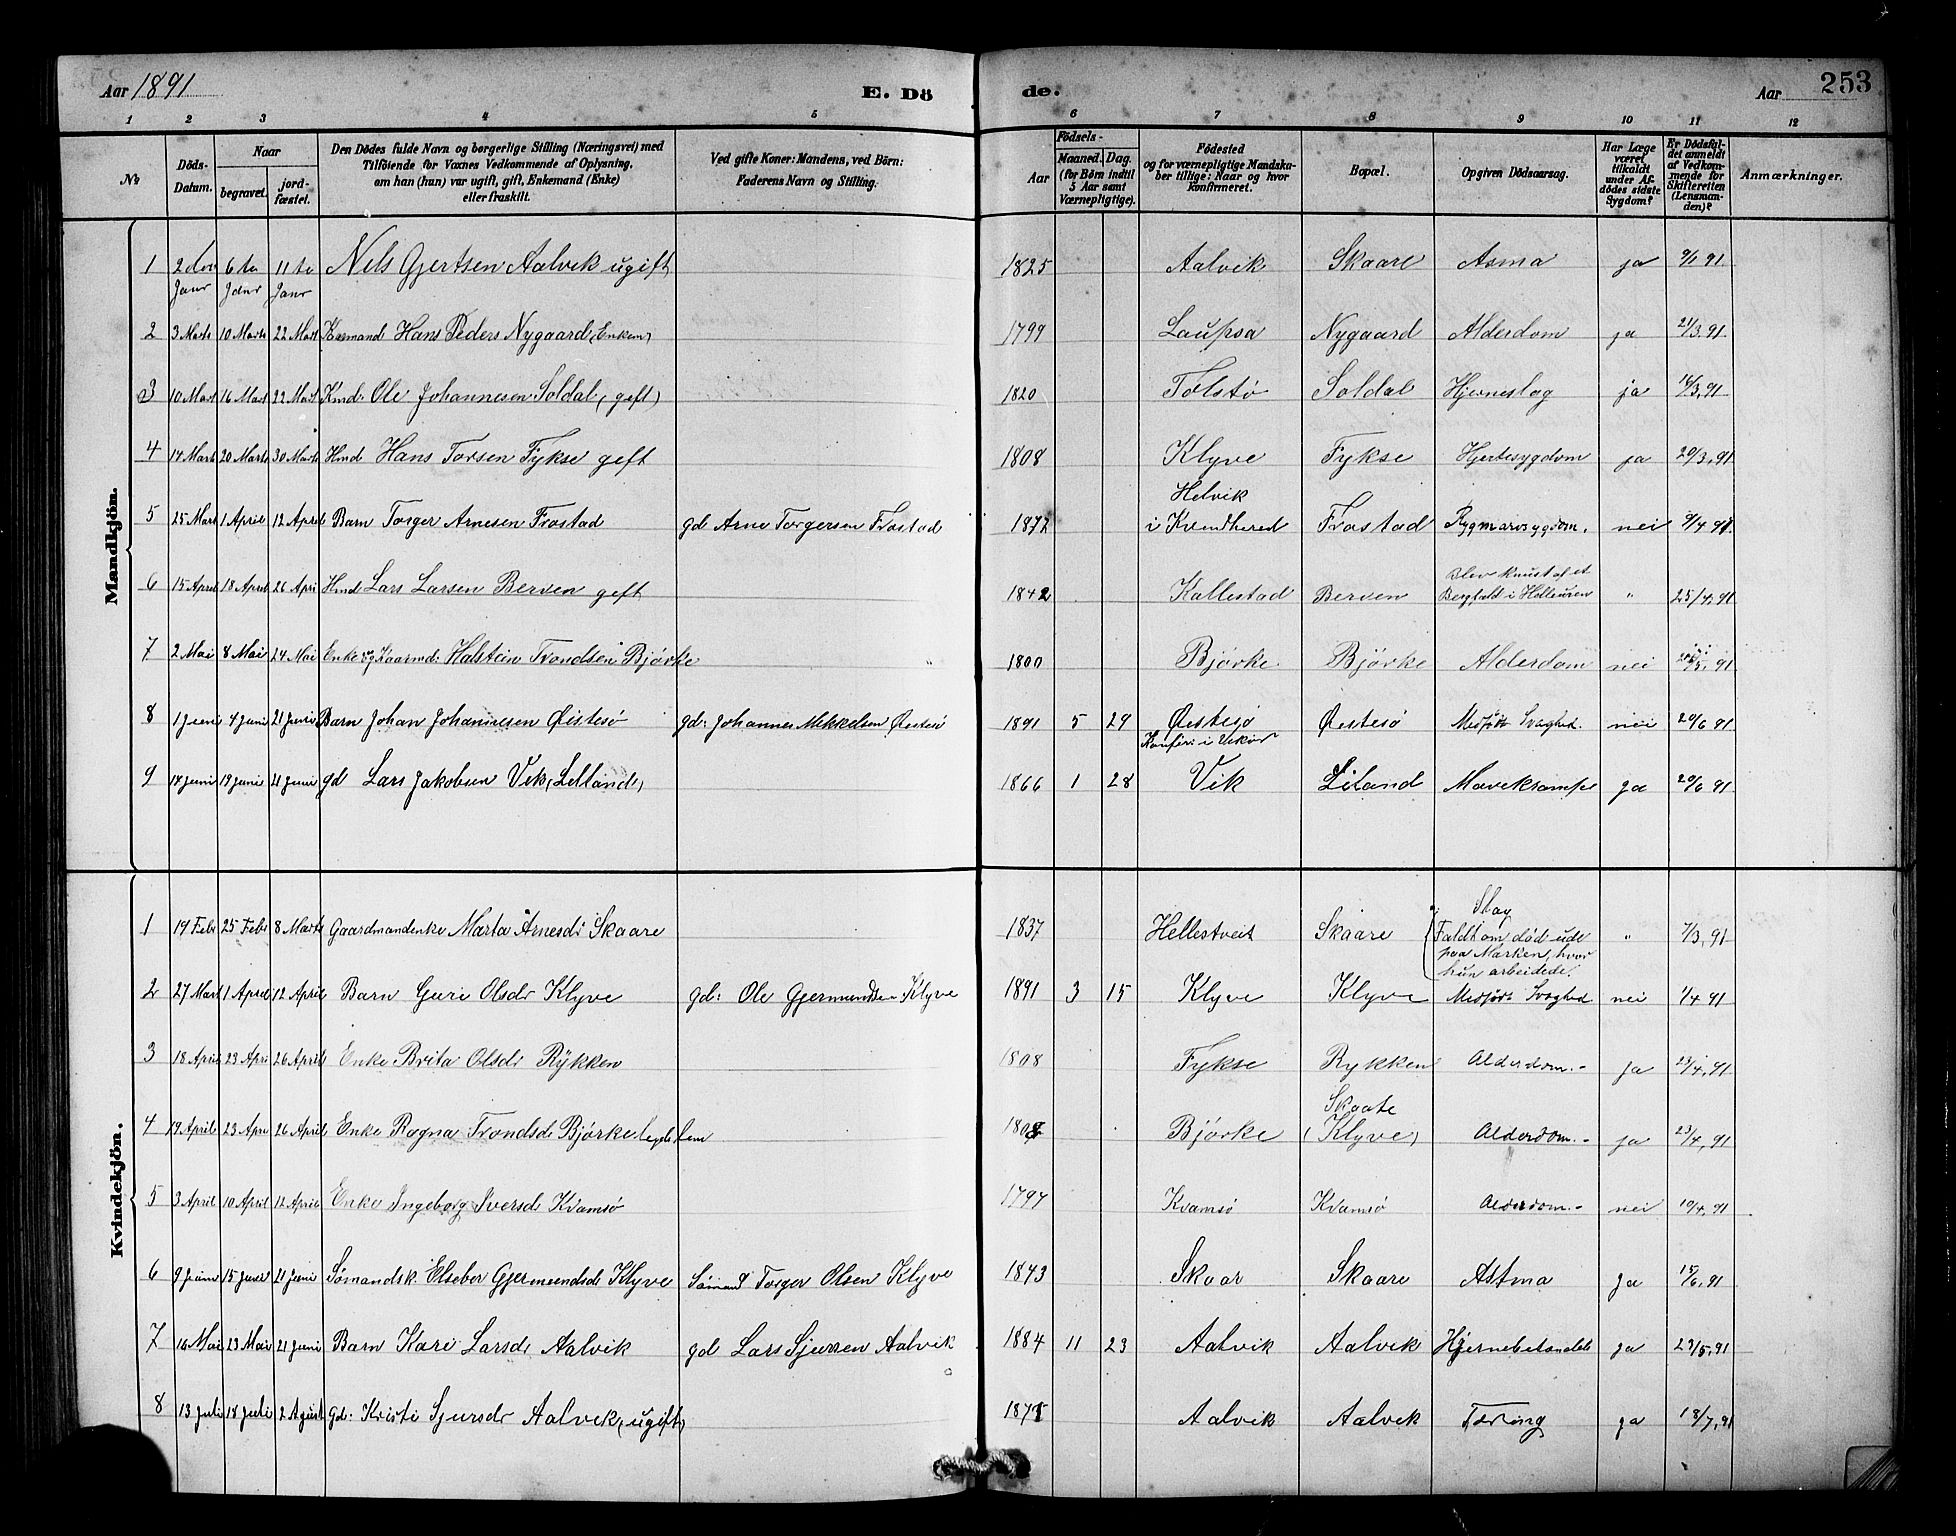 Aar 1891
E. Dö
de.
Aar
253
1 2 3 4 5 6 7 8 9 10 11 12
No
Döds-Datum.
Naar
begravet.
jordfæstet.
Den Dödes fulde Navn og borgerlige Stilling (Næringsvei) med
Tilföiende for Voxnes Vedkommende af Oplysning,
om han (hun) var ugift, gift, Enkemand (Enke)
eller fraskilt.
Ved gifte Koner: Mandens, ved Börn:
Faderens Navn og Stilling.
Aar
Födsels-
Maaned. Dag.
(for Börn indtil
5 Aar samt
Værnepligtige).
Födested
og for værnepligtige Mandskaber tillige: Naar og hvor
konfirmeret.
Bopæl.
Opgiven Dödsaarsag.
Har Læge
været
tilkaldt
under Afdödes sidste
Sygdom?
Er Dödsfaldet anmeldt
af Vedkommende for
Skifteretten
(Lensmanden)?
Anmærkninger.
Mandkjön.
1 2den Janr 6te Janr 11te Janr Nels Gjertsen Aalvik ugift 1825 Aalvik Skaare Asma ja 9/1 91
2 3 Marts 10 Marts 22 Mart Kaarmand Hans Peders Nygaard (Enkem) 1799 Laupsa Nygaard Alderdom ja 21/3 91
3 10 Mart 16 Mart 22 Mart Kmd. Ole Johannesen Soldal (geft) 1820 Tolstø Soldal Hjerneslag ja 16/3, 91
4 14 Marts 20 Marts 30 Marts Hmd Hans Torsen Fykse geft 1808 Klyve Fykse Hjertesygdom ja 20/3, 91
5 25 Mart 1 April 12 April Barn Torger Arnesen Frostad gd. Arne Torgersen Frostad 1872 Helvik i Kvindhered Frostad Rygmarvsygdom. nei 9/4 91
6 15 April 18 April 26 Apri Hmd Lars Larsen Berven geft 1842 Kallestad Berven Blev knust af et Bergfald i Helleuren " 25/4, 91
7 2 Mai 8 Mai 24 Mai Enke og Kaarmd: Halstein Trondsen Bjørke " 1800 Bjørke Bjørke Alderdom nei /5, 91
8 1 Juni 4 Juni 21 Juni Barn Johan Johannesen Øistesø gd: Johannes Mikkelsen Østesø 1891 5 29 Østesø Østesø Medfødt Svaghed. nei 20/6 91
9 14 Juni 19 Juni 21 Juni gd Lars Jakobsen Vik (Lilland) 1866 1 28 Konfir. i Vikør Vik Liland Mavekrampe ja 20/6 91
Kvindekjön.
1 19 Febr 25 Febr 8 Marts Gaardmandenke Marta Arnesdr Skaare 1837 Hellestveit Skaare Slag Faldt om død ude paa Marken, hvor hun arbeidede. " 7/3, 91
2 27 Mart 1 April 12 April Barn Guri Olsdr Klyve gd: Ole Gjermundsen Klyve 1891 3 15 Klyve Klyve Medfødt Svaghed nei 1/4 91
3 18 April 23 Apri 26 April Enke Brita Olsdr Rykken 1808 Fykse Rykken Alderdom.- ja 23/4, 91
4 19 April 23 Apr 26 April Enke Ragna Trondsdr Bjørke legdslem 1808 Bjørke Skaate (Klyve) Alderdom.- ja 23/4, 91
5 3 April 10 April 12 April Enke Ingeborg Iversdr Kvamsø 1797 Kvamsø Kvamsø Alderdom.- nei 10/4, 91
6 9 Juni 15 Juni 21 Juni Sømandsk. Elseber Gjermundsdr Klyve Sømand Torger Olsen Klyve 1843 Skaar Skaare Astma ja 15/6, 91
7 16 Mai 23 Mai 21 Juni Barn Kari Larsdr Aalvik gd Lars Sjursen Aalvik 1884 11 23 Aalvik Aalvik Hjernebetændels ja 23/5, 91
8 13 Juli 18 Juli 2 Agust gd: Kristi Sjursdr Aalvik (ugift) 1871 Aalvik Aalvik Tæring ja 18/7, 91